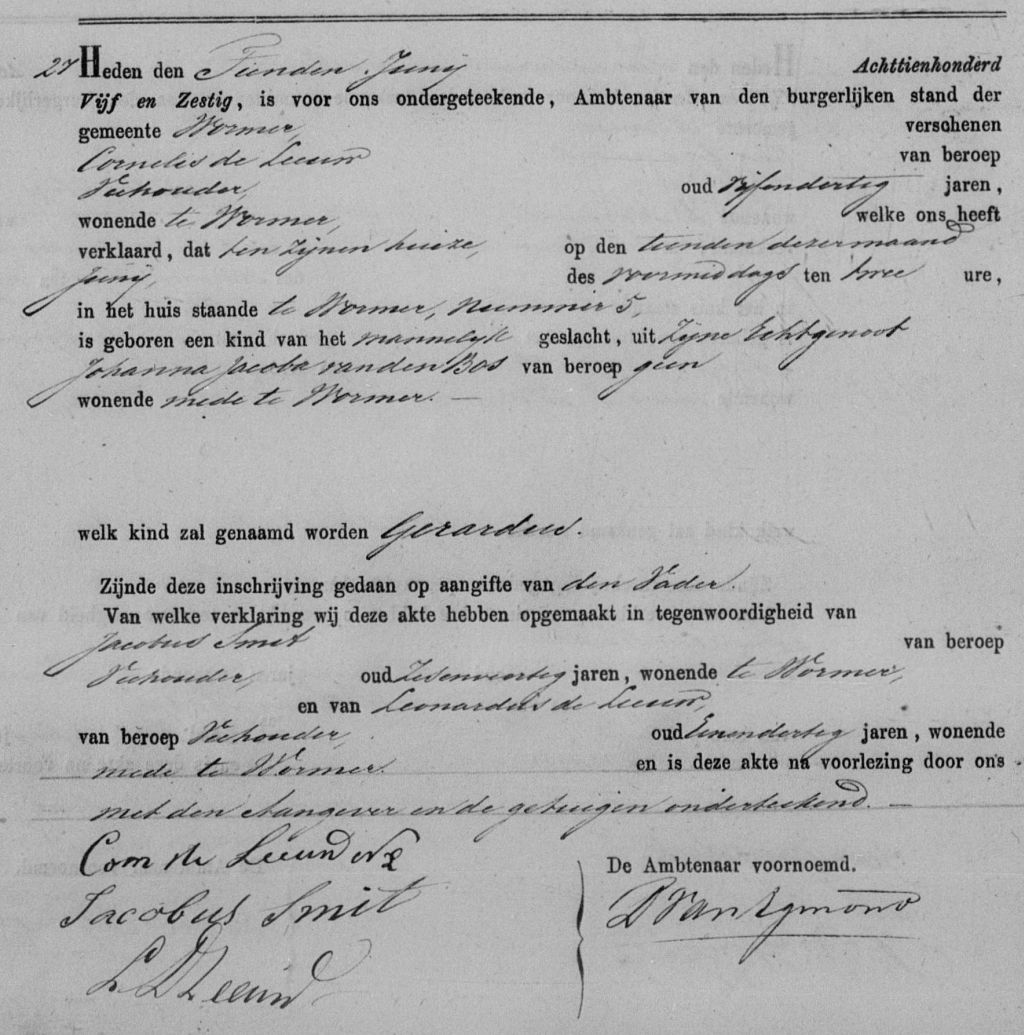 27 Heden den Tienden Juny Achttienhonderd
Vijf en Zestig, is voor ons ondergeteekende, Ambtenaar van den burgerlijken stand der
gemeente Wormer, verschenen
Cornelis de Leeuw van beroep
Veehouder, oud Vijfendertig jaren,
wonende te Wormer, welke ons heeft
verklaard, dat ten zijnen huize, op den tienden dezer maand
Juny, des voormiddags ten twee ure,
in het huis staande te Wormer, nummer 5,
is geboren een kind van het mannelyk geslacht, uit Zijne Echtgenoot
Johanna Jacoba van den Bos van beroep geen
wonende mede te Wormer. —
welk kind zal genaamd worden Gerardus.
Zijnde deze inschrijving gedaan op aangifte van den Vader.
Van welke verklaring wij deze akte hebben opgemaakt in tegenwoordigheid van
Jacobus Smit van beroep
Veehouder, oud Zesenveertig jaren, wonende te Wormer,
en van Leonardus de Leeuw,
van beroep Veehouder, oud Eenendertig jaren, wonende
mede te Wormer. en is deze akte na voorlezing door ons
met den Aangever en de getuigen onderteekend. —
Corn de Leeuw
De Ambtenaar voornoemd.
Jacobus Smit
D Van Egmond
L D Leeuw